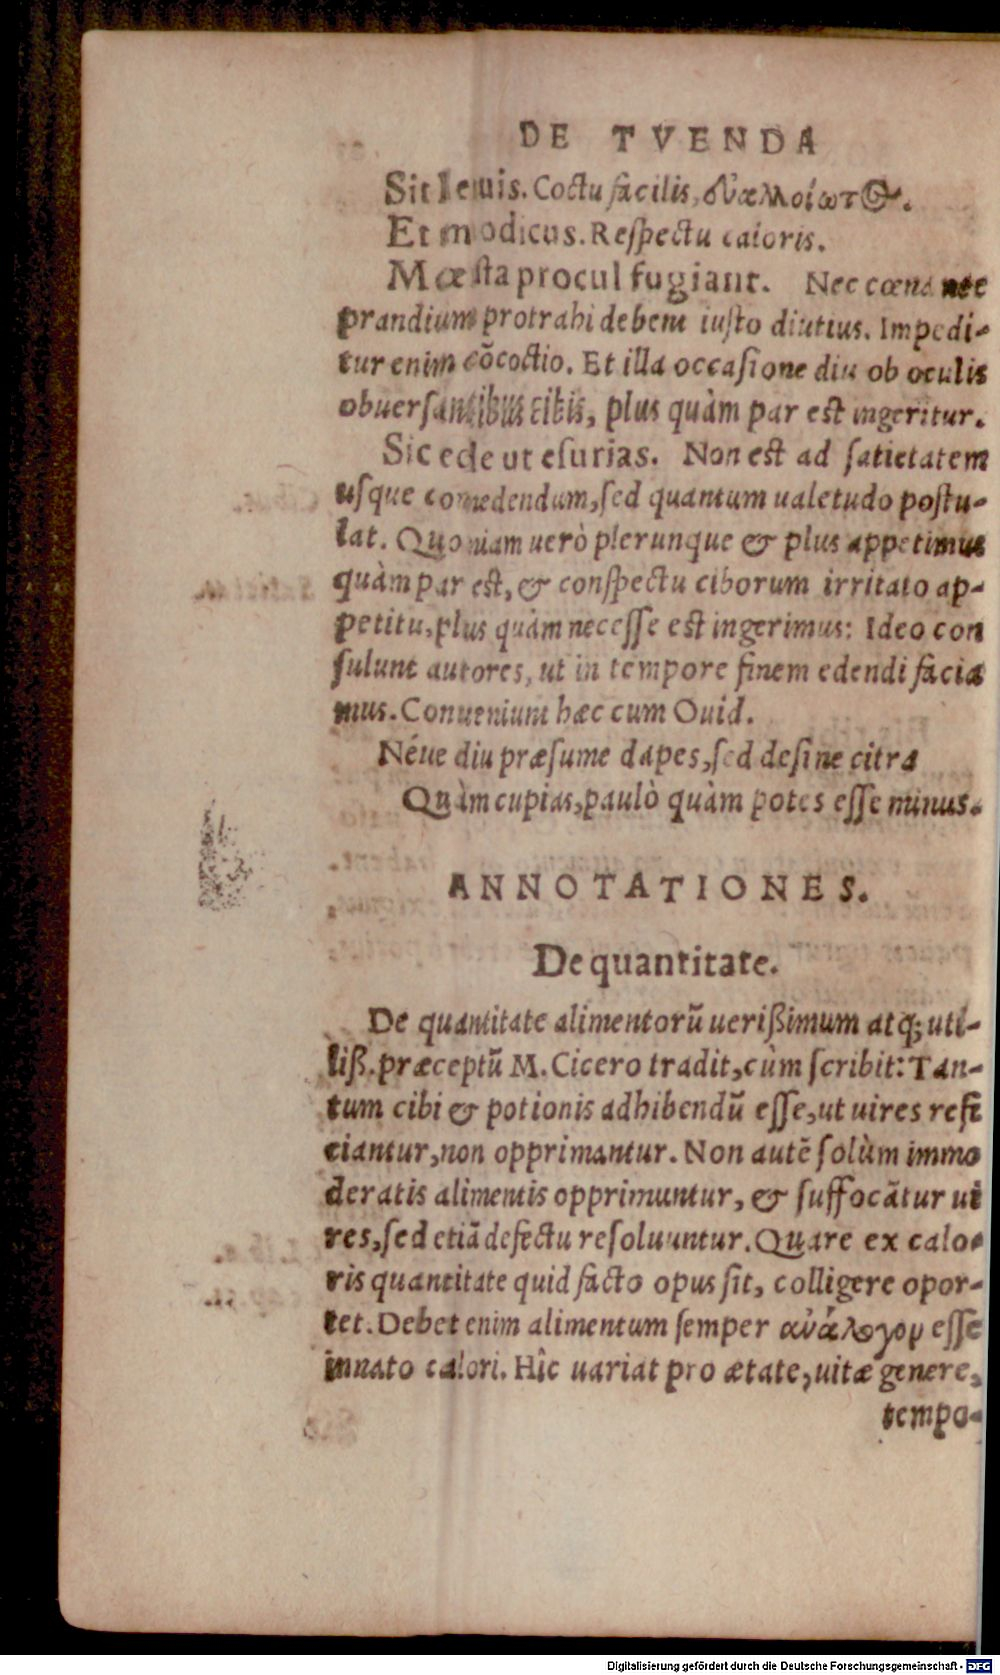 DE TVENDA
Sit leuis. Coctu facilis, δυαλλοίωτος.
Et modicus. Respectu caloris.
Mœsta procul fugiant. Nec cœna nec
prandium protrahi debent iusto diutius. Impedi-
tur enim cōcoctio. Et illa occasione diu ob oculis
obuersantibus cibis, plus quàm par est ingeritur.
Sic ede ut esurias. Non est ad satietatem
usque comedendum, sed quantum ualetudo postu-
lat. Quoniam uerò plerunque & plus appetimus
quàm par est, & conspectu ciborum irritato ap-
petitu, plus quàm necesse est ingerimus: Ideo con
sulunt autores, ut in tempore finem edendi facia
mus. Conueniunt hæc cum Ouid.
Néue diu præsume dapes, sed desine citra
Quàm cupias, paulò quàm potes esse minus.
ANNOTATIONES.
De quantitate.
De quantitate alimentorū uerißimum atq; uti-
liß. præceptū M. Cicero tradit, cùm scribit: Tan-
tum cibi & potionis adhibendū esse, ut uires refi
ciantur, non opprimantur. Non autē solùm immo
deratis alimentis opprimuntur, & suffocātur ui
res, sed etiā defectu resoluuntur. Quare ex calo-
ris quantitate quid facto opus sit, colligere opor-
tet. Debet enim alimentum semper ἀνάλογον esse
innato calori. Hîc uariat pro ætate, uitæ genere,
tempo-
Digitalisierung gefördert durch die Deutsche Forschungsgemeinschaft - DFG